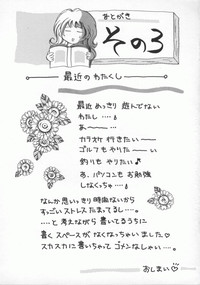 あとがき
その3
最近のわたくし
最近めっきり遊んでない
わたし・・・。
あ〜・・・。
カラオケ行きたい〜
ゴルフもやりたい〜
釣りもやりたい♪
あ、パソコンもお勉強
しなくっちゃ・・・。
なんか思いっきり時間ないから
すっごいストレスたまってるし・・・。
・・・と考えながら書いてるうちに
書くスペースがなくなっちゃいました♡
スカスカに書いちゃってゴメンなしゃい・・・。
おしまい♡